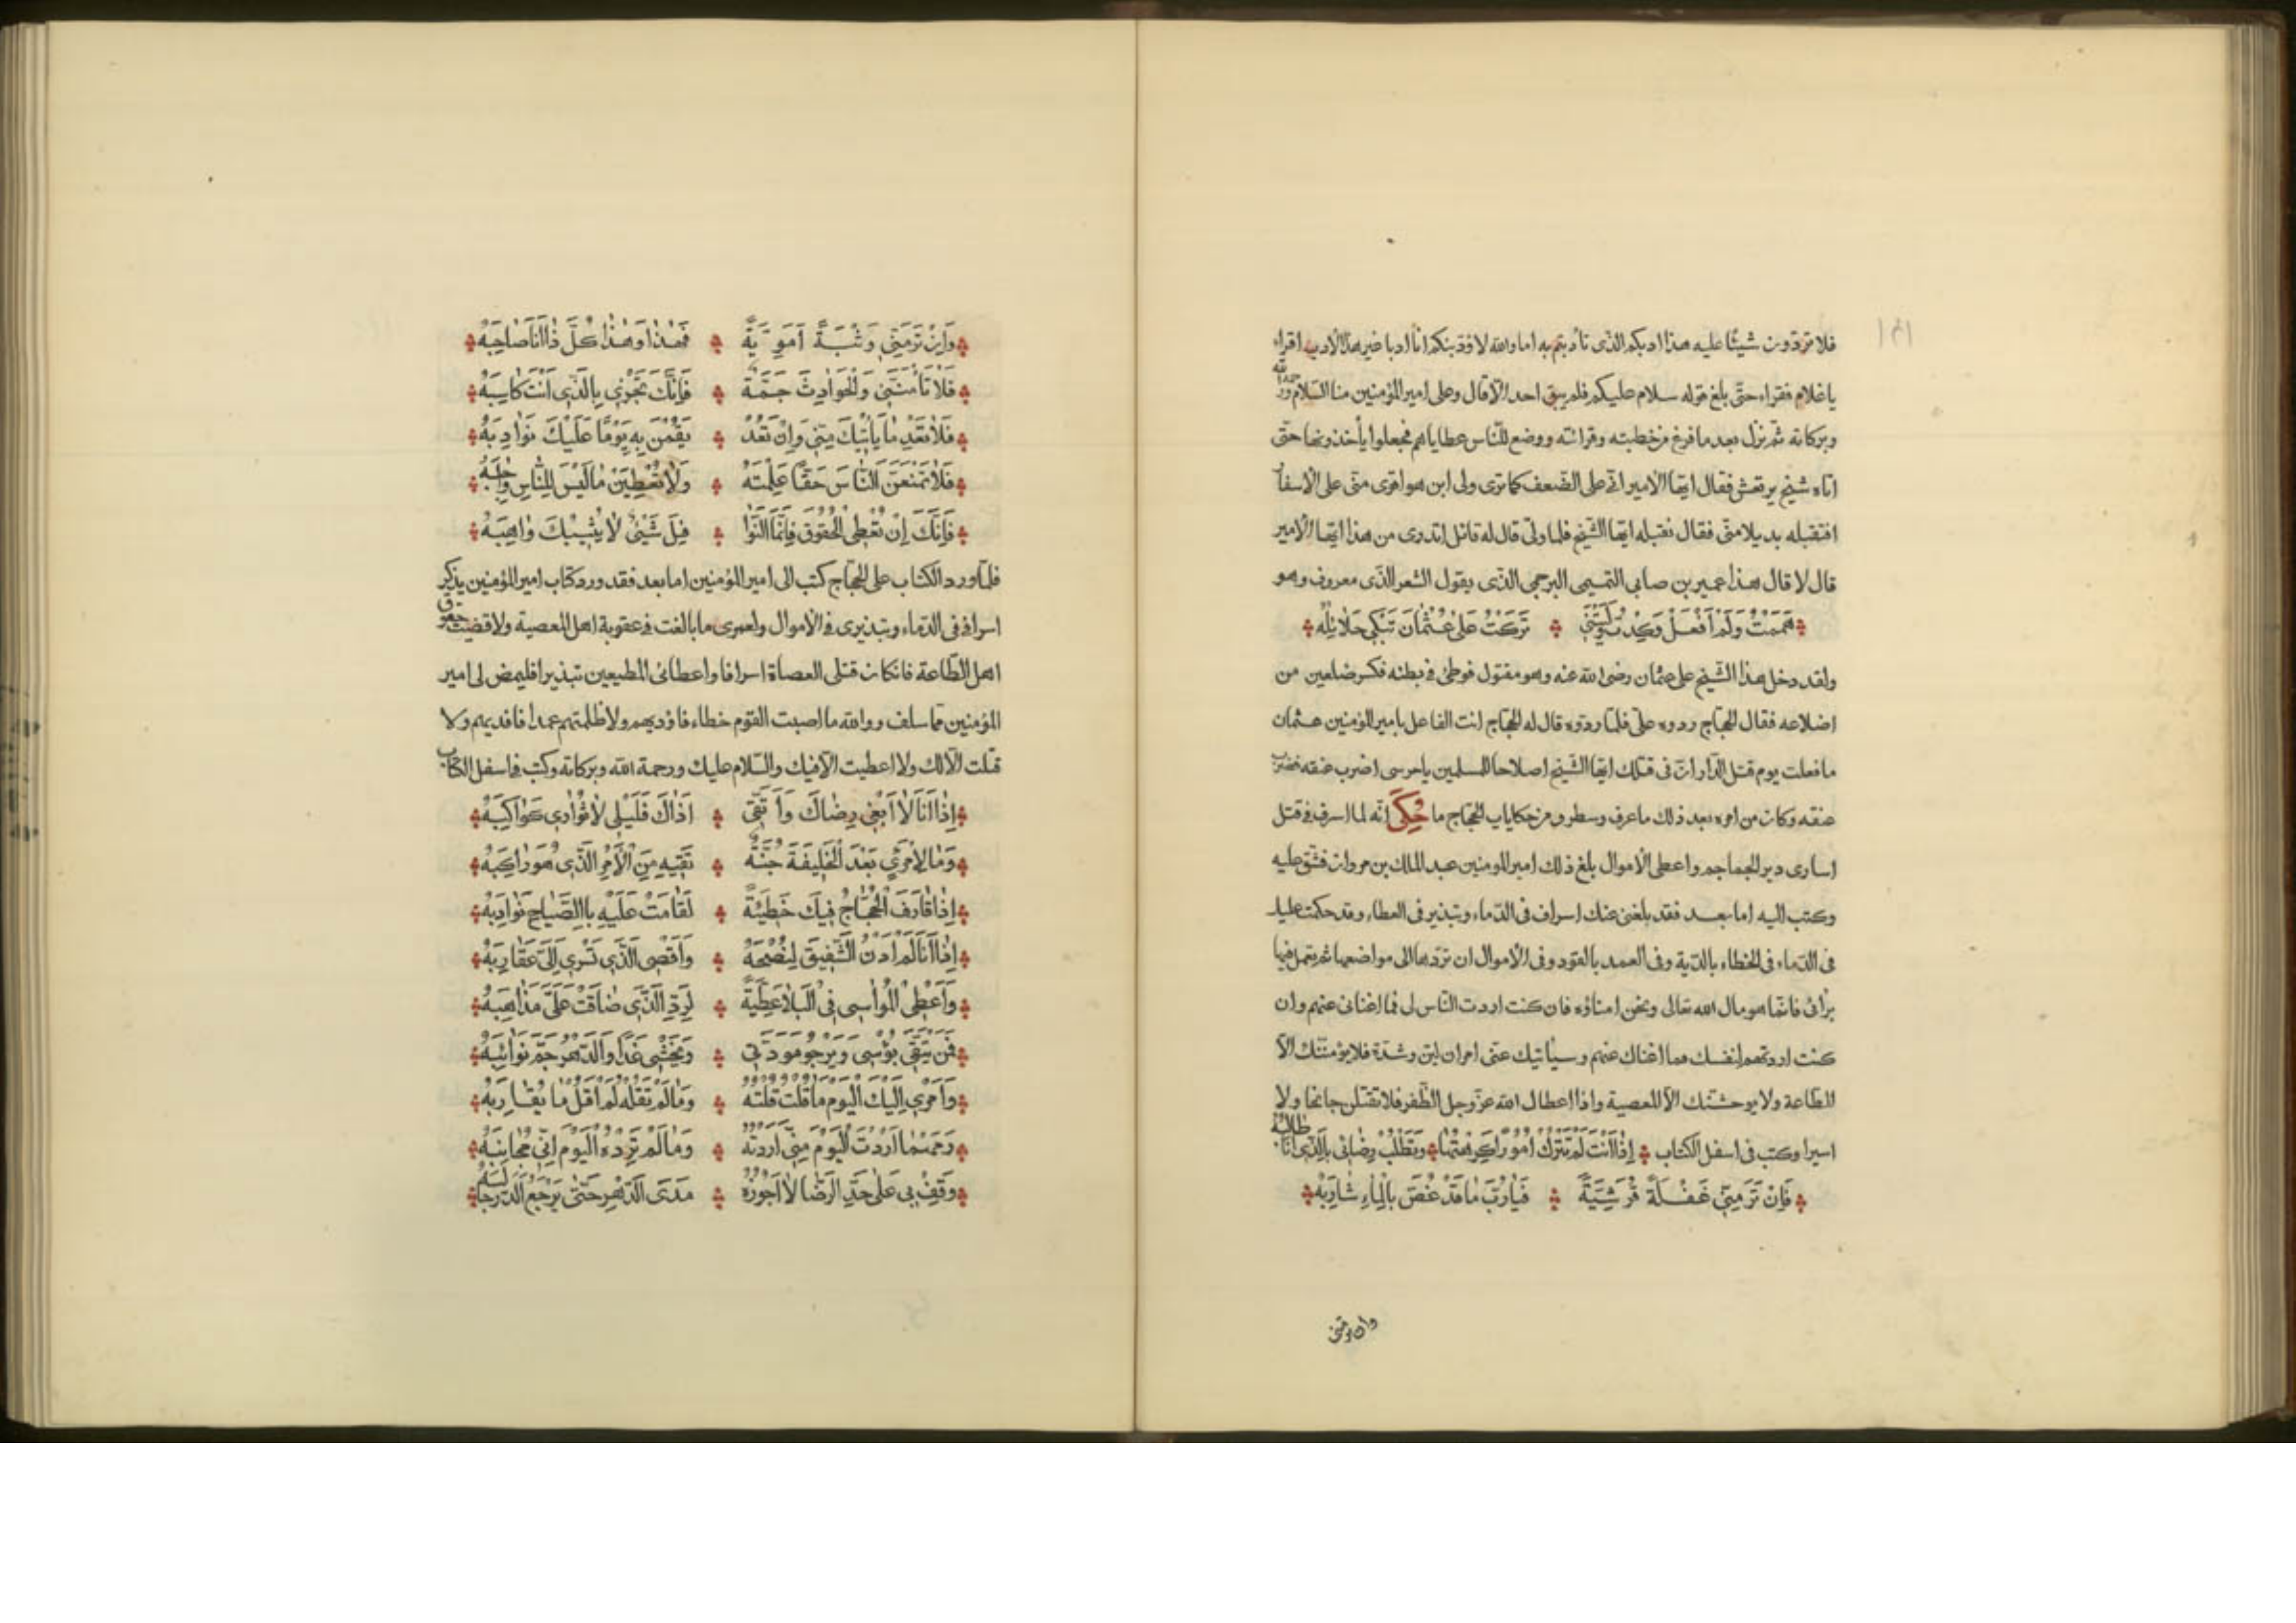 فلا تردّون شيئًا عليه هذا ادبكم الذى تأدبتم به اما والله لاؤدبنكم انا ادبا غير هذا الادب اقراء
يا غلام فقراء حتّى بلغ قوله سلام عليكم فلم يبق احد الاّ قال وعلى امير المؤمنين منا السّلام ورحمة الله
وبركاته ثمّ نزل بعد ما فرغ من خطبته وقرائته ووضع للنّاس عطاياهم فجعلوا يأخذونها حتى
اتاه شيخ يرتعش فقال ايّها الامير انّى على الضّعف كما ترى ولى ابن هو اقوى منّى على الاسفار
افتقبله بديلا منّى فقال نقبله ايّها الشّيخ فلما ولّى قال له قائل اتدرى من هذا ايّها الامير
قال لا قال هذا عمير بن صابى التميمى البرجمى الذّى يقول الشعر الذّى معروف وهو
هَمَمْتُ وَلَمْ اَفْعَلْ وَكِدْتُ وَلَيْتَنِى تَرَكْتُ عَلىٰ عُثْمٰانَ تَبْكِى حَلاٰئِلُهْ
ولقد دخل هذا الشّيخ على عثمان رضى الله عنه وهو مقتول فوطئ فى بطنه فكسر ضلعين من
اضلاعه فقال الحجّاج ردوه علىّ فلمّا ردّوه قال له الحجّاج انت الفاعل بامير المؤمنين عثمان
ما فعلت يوم قتل الدّار انّ فى قتلك ايّها الشّيخ اصلاحا للمسلمين يا حرسى اضرب عنقه فضرب
عنقه وكان من امره بعد ذلك ما عرف وسطر ومن حكايات الحجّاج ما حُكِىَ انّه لما اسرف فى قتل
اسارى دير الجماجم واعطى الاموال بلغ ذلك امير المومنين عبد الملك بن مروان فشّق عليه
وكتب اليه اما بعد فقد بلغنى عنك اسراف فى الدّماء وتبذير فى العطاء وقد حكمت عليك
فى الدّماء فى الخطاء بالدّية وفى العمد بالقود وفى الاموال ان تردّها الى مواضعها ثم تعمل فيها
برائى فانّما هو مال الله تعالى ونحن امناؤه فان كنت اردت النّاس لى فما اغنانى عنهم وان
كنت اردتهم لنفسك فما اغناك عنهم وسيأتيك عنّى امران لين وشدّة فلا يؤمننّك الاّ
الطاعة ولا يوحشنّك الاّ المعصية واذا اعطاك الله عزّ وجل الظّفر فلا تقتلن جانحا ولا
اسيرا وكتب فى اسفل الكتاب اِذٰا اَنْتَ لَمْ تَتْرُكْ اُمُورًا كَرِهْتُهٰا وَتَطْلُبْ رِضٰائى بِالَّذِى اَنَا طٰالِبُهْ
فَاِنْ تَرَ مِنّى غَفْلَةً قُرَشِيَّةً فَيٰا رُبَّ مٰا قَدْ غُصَّ بِالْمٰاءِ شٰارِبُهْ
وان تر منى
وَاِنْ تَرَ مِنّى وَثْبَةً اَمَوِيَّةً فَهٰذٰا وَهٰذٰا كُلُّ ذٰا اَنَا صٰاحِبُهْ
فَلاٰ تَأْمَنَنّى وَالْحَوٰادِثُ جَمَّةٌ فَاِنَّكَ تُجْزٰى بِالَّذِى اَنْتَ كٰاسِبُهْ
فَلاٰ تَعْدُ مٰا يَأْتِيكَ مِنّى وَاِنْ تَعُدْ يَقُمْنَ بِهِ يَوْمًا عَلَيْكَ نَوٰادِبُهْ
فَلاٰ تَمْنَعَنَّ النّٰاسَ حَقًّا عَلِمْتَهُ وَلاٰ تُعْطِيَنْ مٰا لَيْسَ لِلنّٰاسِ وٰاجِبُهْ
فَاِنَّكَ اِنْ تُعْطِى الْحُقُوقَ فَاِنَّمَا النَّوٰا فِلُ شَيْئٌ لاٰ يُثِيبُكَ وٰاهِبُهْ
فلمّا ورد الكتاب على الحجّاج كتب الى امير المؤمنين اما بعد فقد ورد كتاب امير المؤمنين يذكر
اسرافى فى الدّماء وتبذيرى فى الأموال ولعمرى ما بالغت فى عقوبة اهل المعصية ولا قضيت حقوق
اهل الطّاعة فان كان قتلى العصاة اسرافا واعطائى المطيعين تبذيرا فليمض لى امير
المؤمنين ما سلف ووالله ما اصبت القوم خطاء فاؤديهم ولا ظلمتهم عمدا فاقديهم ولا
قتلت الاّ لك ولا اعطيت الاّ فيك والسّلام عليك ورحمة الله وبركاته وكتب فى اسفل الكتاب
اِذٰا اَنَا لاٰ اَبْغِى رِضٰاكَ وَاَتَّقِى اَذٰاكَ فَلَيْلى لاٰ تُوٰارِى كَوٰاكِبُهْ
وَمٰا لاِمْرَئٍ بَعْدَ الْخَلِيفَةِ جُنَّةٌ تَقِيهِ مِنَ الْاَمْرِ الَّذِى هُوَ رٰاكِبُهْ
اِذٰا قٰارَفَ الْحَجّٰاجُ فِيكَ خَطِيئَةً لَقٰامَتْ عَلَيْهِ بِالصَّبٰاحِ نَوٰادِبُهْ
اِذٰا اَنَا لَمْ اُدْنُ الشَّفِيقَ لِنُصْحِهِ وَاَقْصِى الَّذِى تَسْرِى اِلَىَّ عَقٰارِبُهْ
وَاُعْطِى الْمُوٰاسِى فِى الْبَلاٰ عَطِيَّةً لِرَدِّ الَّذِى ضٰاقَتْ عَلَىَّ مَذٰاهِبُهْ
فَمَنْ يَتَّقِى بُؤْسِى وَيَرْجُو مَوَدَّتِى وَيَخْشٰى غَدًا وَالدَّهْرُ جَمٌّ نَوٰائِبُهْ
وَاَمْرِى اِلَيْكَ الْيَوْمَ مٰا قُلْتَ قُلْتُهُ وَمٰا لَمْ تَقُلْهُ لَمْ اَقُلْ مٰا يُقٰارِبُهْ
وَمَهْمٰا اَرَدْتَ الْيَوْمَ مِنّى اَرَدْتُهُ وَمٰا لَمْ تُرِدْهُ الْيَوْمَ اِنّى مُجٰانِبُهْ
وَقِفْ بِى عَلٰى حَدِّ الرِّضٰا لاٰ اَجُوزُهُ مَدَى الدَّهْرِ حَتّٰى يَرْجِعَ الدَّرَّ